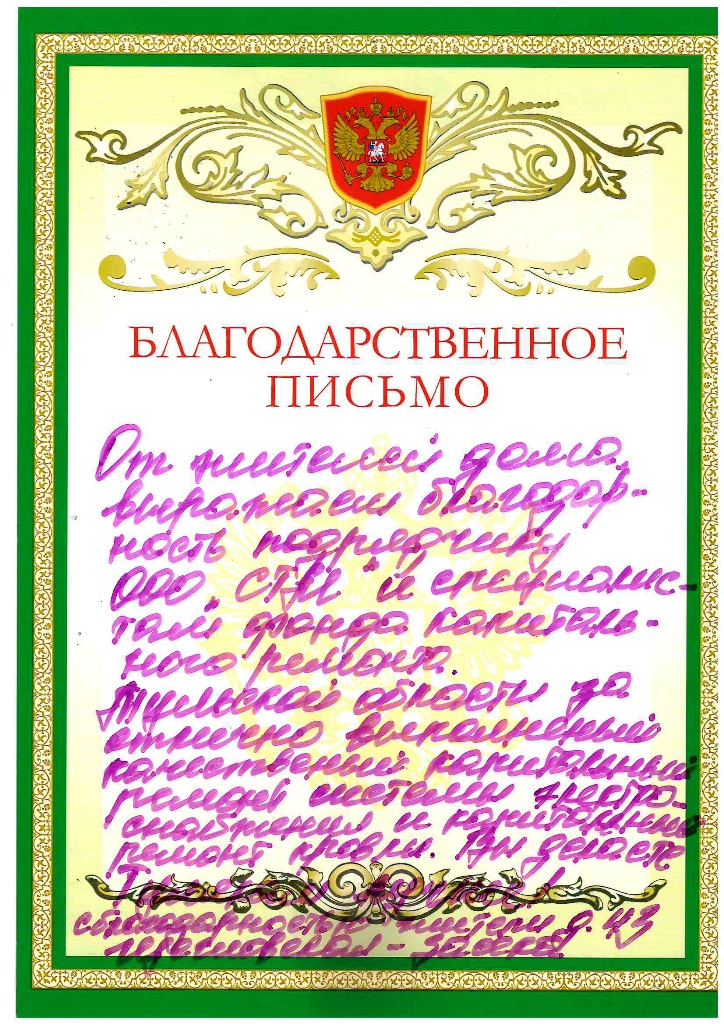 БЛАГОДАРСТВЕННОЕ
ПИСЬМО
От жителей дома
выражаем благодар-
ность подрядчику
ООО „СТМ" и специалис-
там фонда капиталь-
ного ремонта.
Тульской области за
отлично выполненый
качественный капитальный
ремонт системы электро-
снабжения и капитальный
ремонт кровли. Вы делаете
с благодарностью жители д. 43